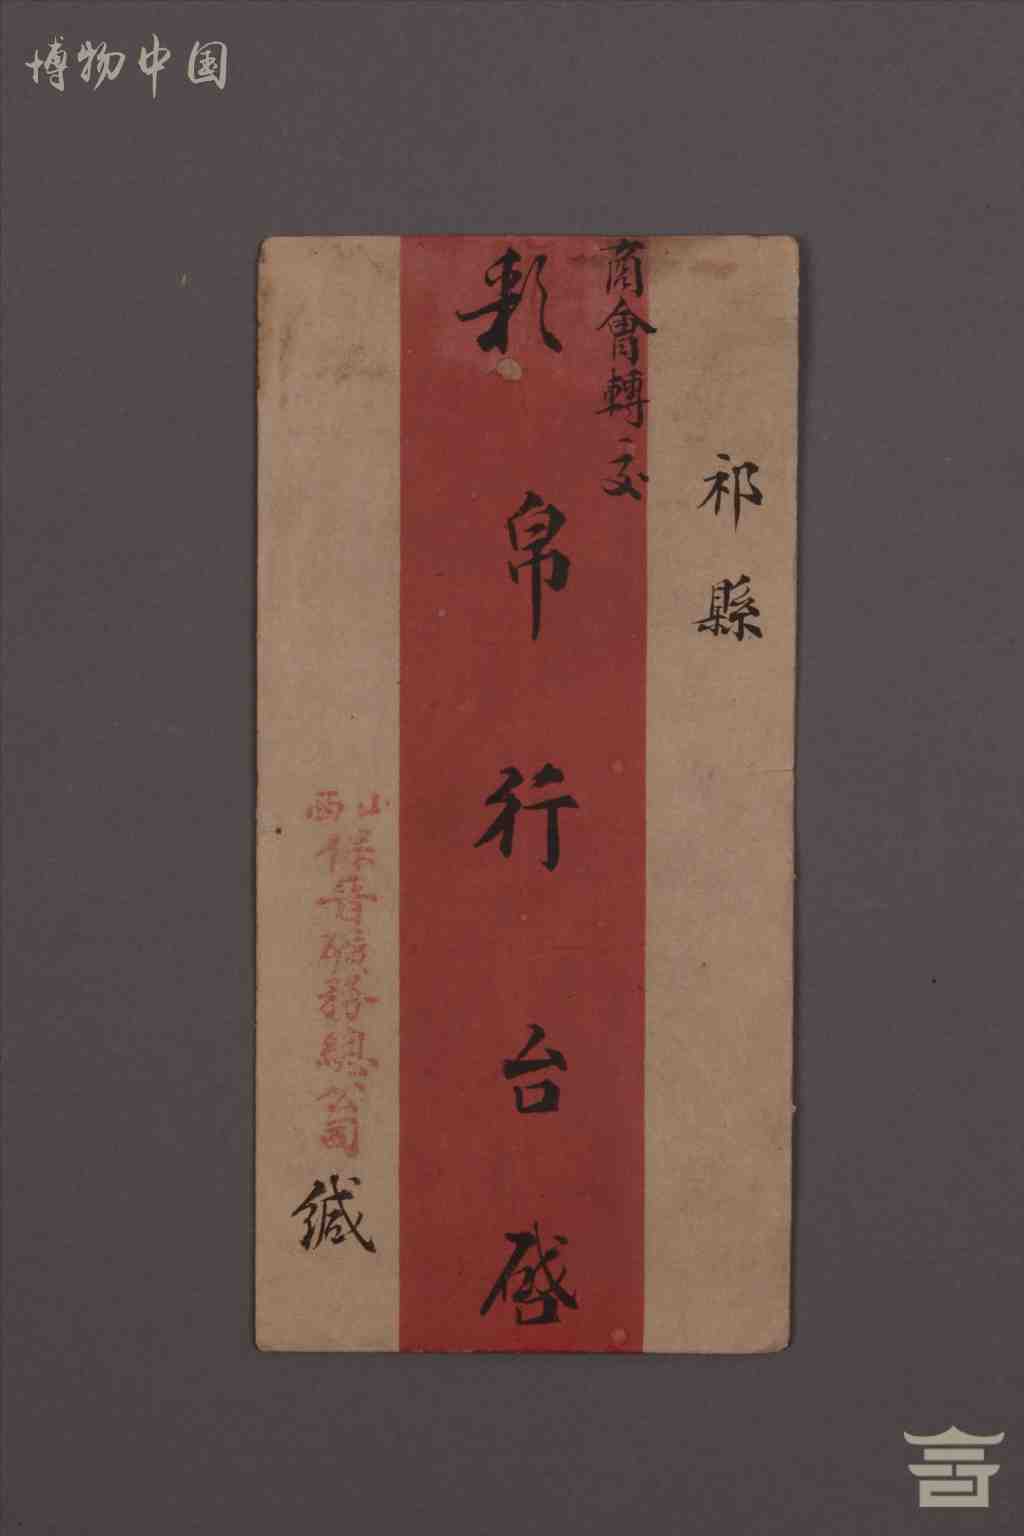 博物中国
祁縣
商會轉交
彩帛行台啟
山西
保晉礦務總公司
緘